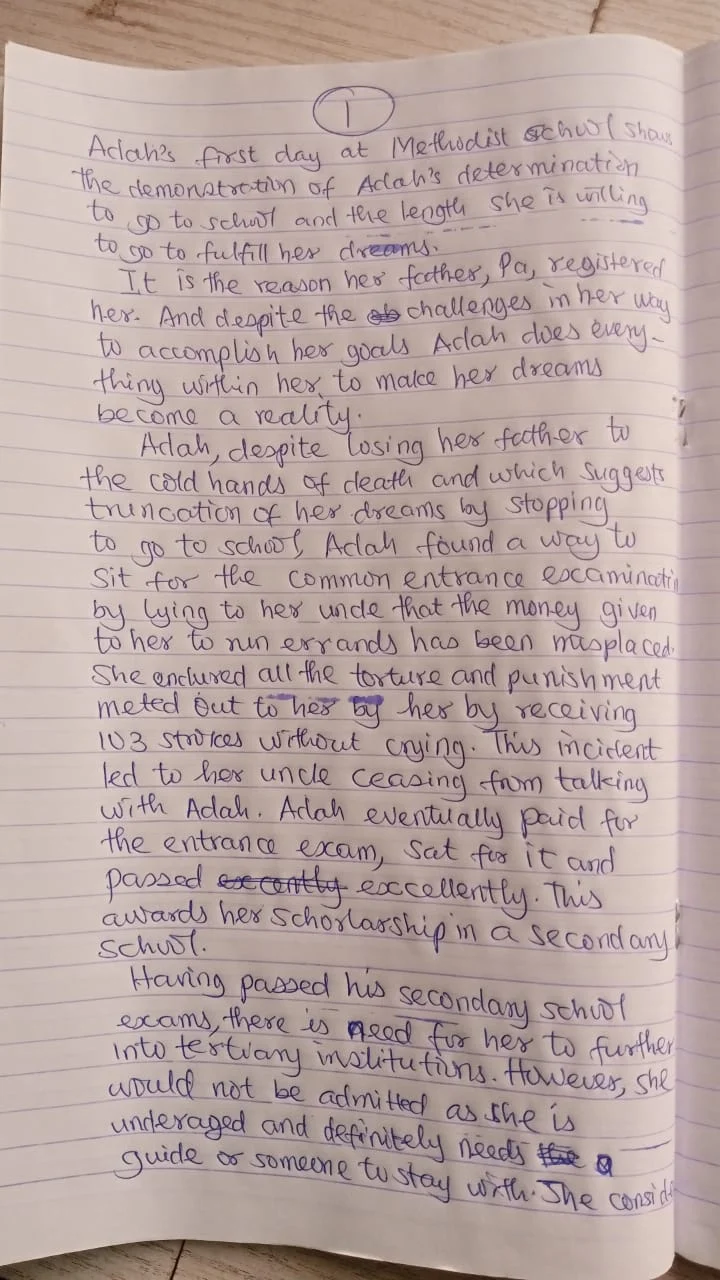 1
Adah's first day at Methodist school shows
the demonstration of Adah's determination
to go to school and the length she is willing
to go to fulfill her dreams.
It is the reason her father, Pa, registered
her. And despite the challenges in her way
to accomplish her goals Adah does every-
thing within her, to make her dreams
become a reality.
Adah, despite losing her father to
the cold hands of death and which suggests
truncation of her dreams by stopping
to go to school, Adah found a way to
sit for the common entrance
by lying to her uncle that the money given
to her to run errands has been misplaced.
She endured all the torture and punishment
meted out to her by her by receiving
103 strokes without crying. This incident
led to her uncle ceasing from talking
with Adah. Adah eventually paid for
the entrance exam, sat for it and
passed excently exccellently. This
awards her schorlarship in a secondary
school.
Having passed his secondary school
exams, there is need for her to further
into tertiary institutions. However, she
would not be admitted as she is
underaged and definitely needs the a
guide or someone to stay with. She